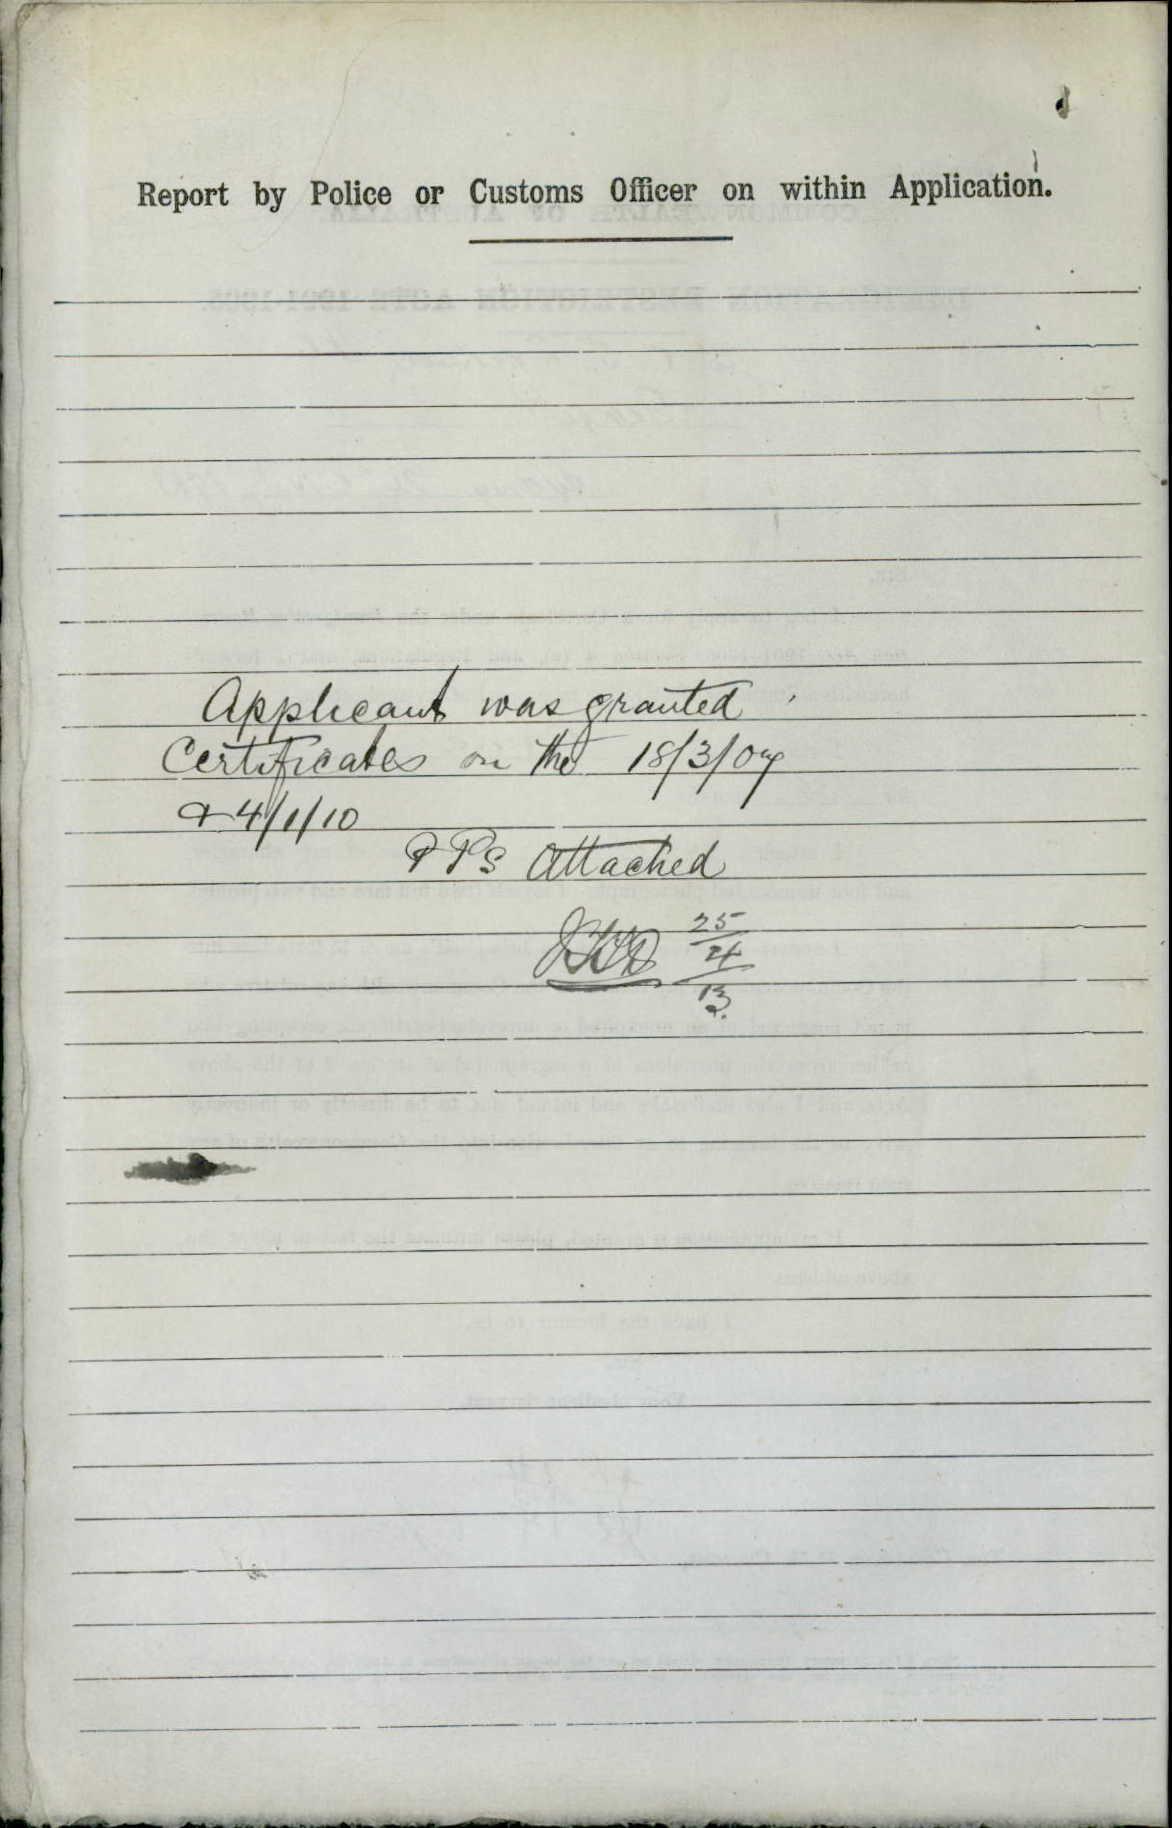 Report by Police or Customs Officer on within Application.
Applicant was granted
Certificates on the 18/3/07
& 4/1/10
PPs attached
25
4
13.